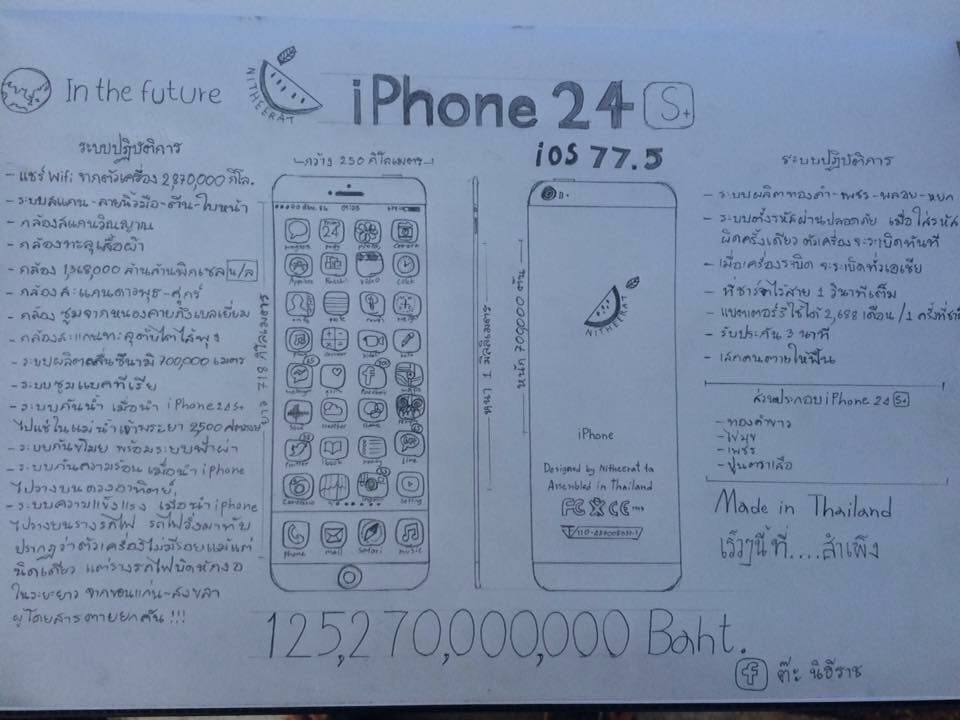 In the future
NITHEERAT
iPhone 24 S+
iOS 77.5
ระบบปฏิบัติการ
- แชร์ Wifi จากตัวเครื่อง 2,870,000 กิโล.
- ระบบสแกน-ลายนิ้วมือ-ตีน-ใบหน้า
- กล้องสแกนวิญญาณ
- กล้องทะลุเสื้อผ้า
- กล้อง 1,368,000 ล้านล้านพิกเซล น/ล
- กล้องสะแกนดาวพุธ-ศุกร์
- กล้อง ซูมจากหนองคายถึงเบลเยี่ยม
- กล้องสะแกนทะลุตับไตไส้พุง
- ระบบผลิตคลื่นซึนามิ 700,000 เมตร
- ระบบซูมแบคทีเรีย
- ระบบกันน้ำ เมื่อนำ iPhone24S+
ไปแช่ในแม่น้ำเจ้าพระยา 2,500 ศตวรรษ
- ระบบกันขโมย พร้อมระบบฟ้าผ่า
- ระบบกันความร้อน เมื่อนำ iPhone
ไปวางบนดวงอาทิตย์
- ระบบความแข็งแรง เมื่อนำ iPhone
ไปวางบนรางรถไฟ รถไฟวิ่งมาทับ
ปรากฏว่าตัวเครื่องไม่มีรอยแม้แต่
นิดเดียว แต่รางรถไฟบิดหักงอ
ในระยะยาว จากขอนแก่น-สงขลา
ผู้โดยสารตายยกคัน !!!
กว้าง 250 กิโลเมตร
ยาว 718 กิโลเมตร
หนา 1 มิลลิเมตร
หนัก 700,000 ตัน
Phone
mail
Safari
music
NITHEERAT
iPhone
Designed by Nitheerat ta
Assembled in Thailand
FC CE
ระบบปฏิบัติการ
- ระบบผลิตทองคำ-เพชร-พลอย-หยก
- ระบบตั้งรหัสผ่านปลอดภัย เมื่อใส่รหัส
ผิดครั้งเดียว ตัวเครื่องจะระเบิดทันที
- เมื่อเครื่องระเบิด จะระเบิดทั่วเอเชีย
- ที่ชาร์จไร้สาย 1 วินาทีเต็ม
- แบตเตอรี่ใช้ได้ 2,688 เดือน/1 ครั้งที่ชาร์จ
- รับประกัน 3 นาที
- เสกคนตายให้ฟื้น
ส่วนประกอบ iPhone 24 S+
- ทองคำขาว
- ไข่มุก
- เพชร
- ปูนตราเสือ
Made in Thailand
เร็วๆนี้ที่....สำเพ็ง
125,270,000,000 Baht.
f ต๊ะ นิธีราช